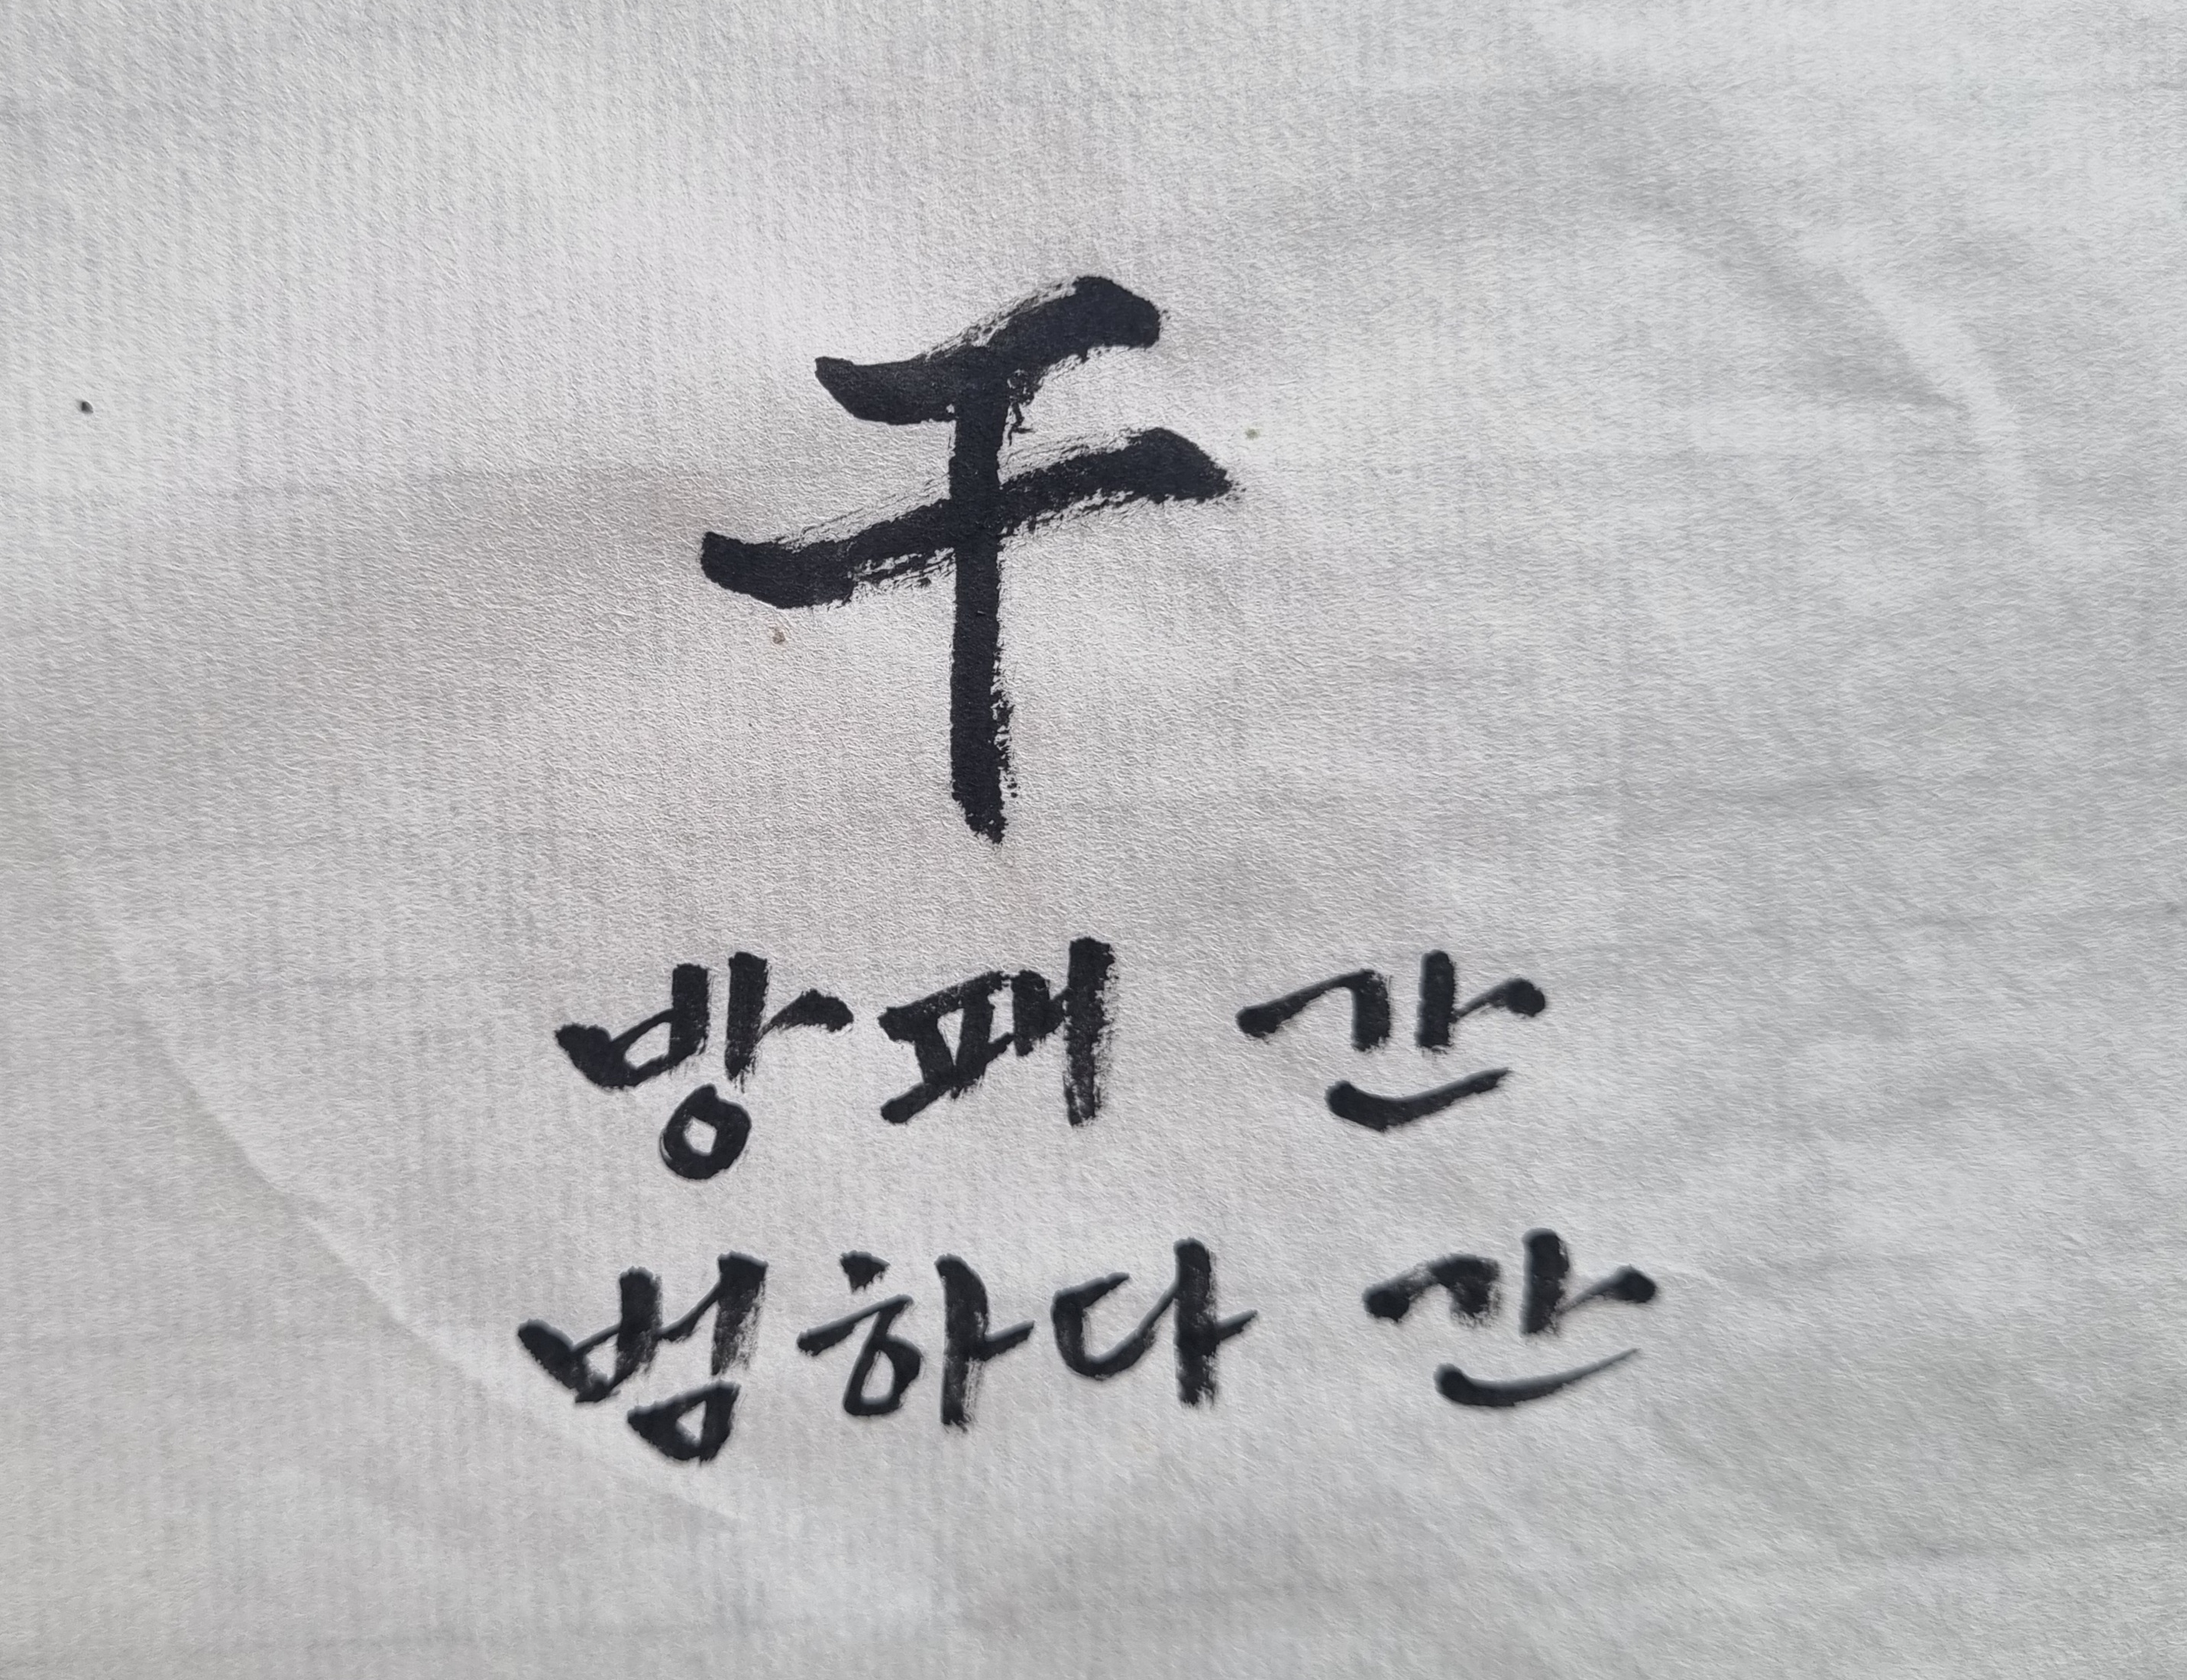 干
방패 간
범하다 간